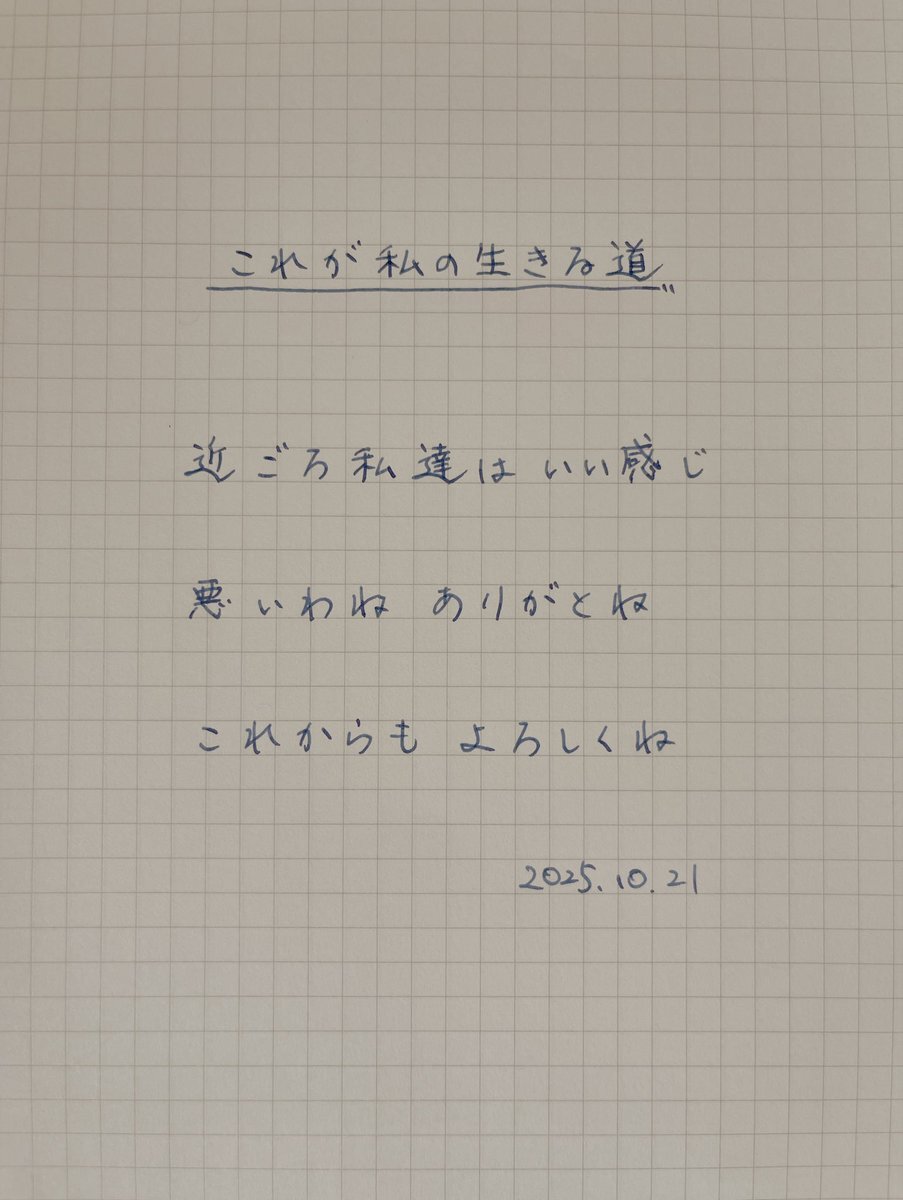 これが私の生きる道
近ごろ私達は いい感じ
悪いわね ありがとね
これからも よろしくね
2025.10.21